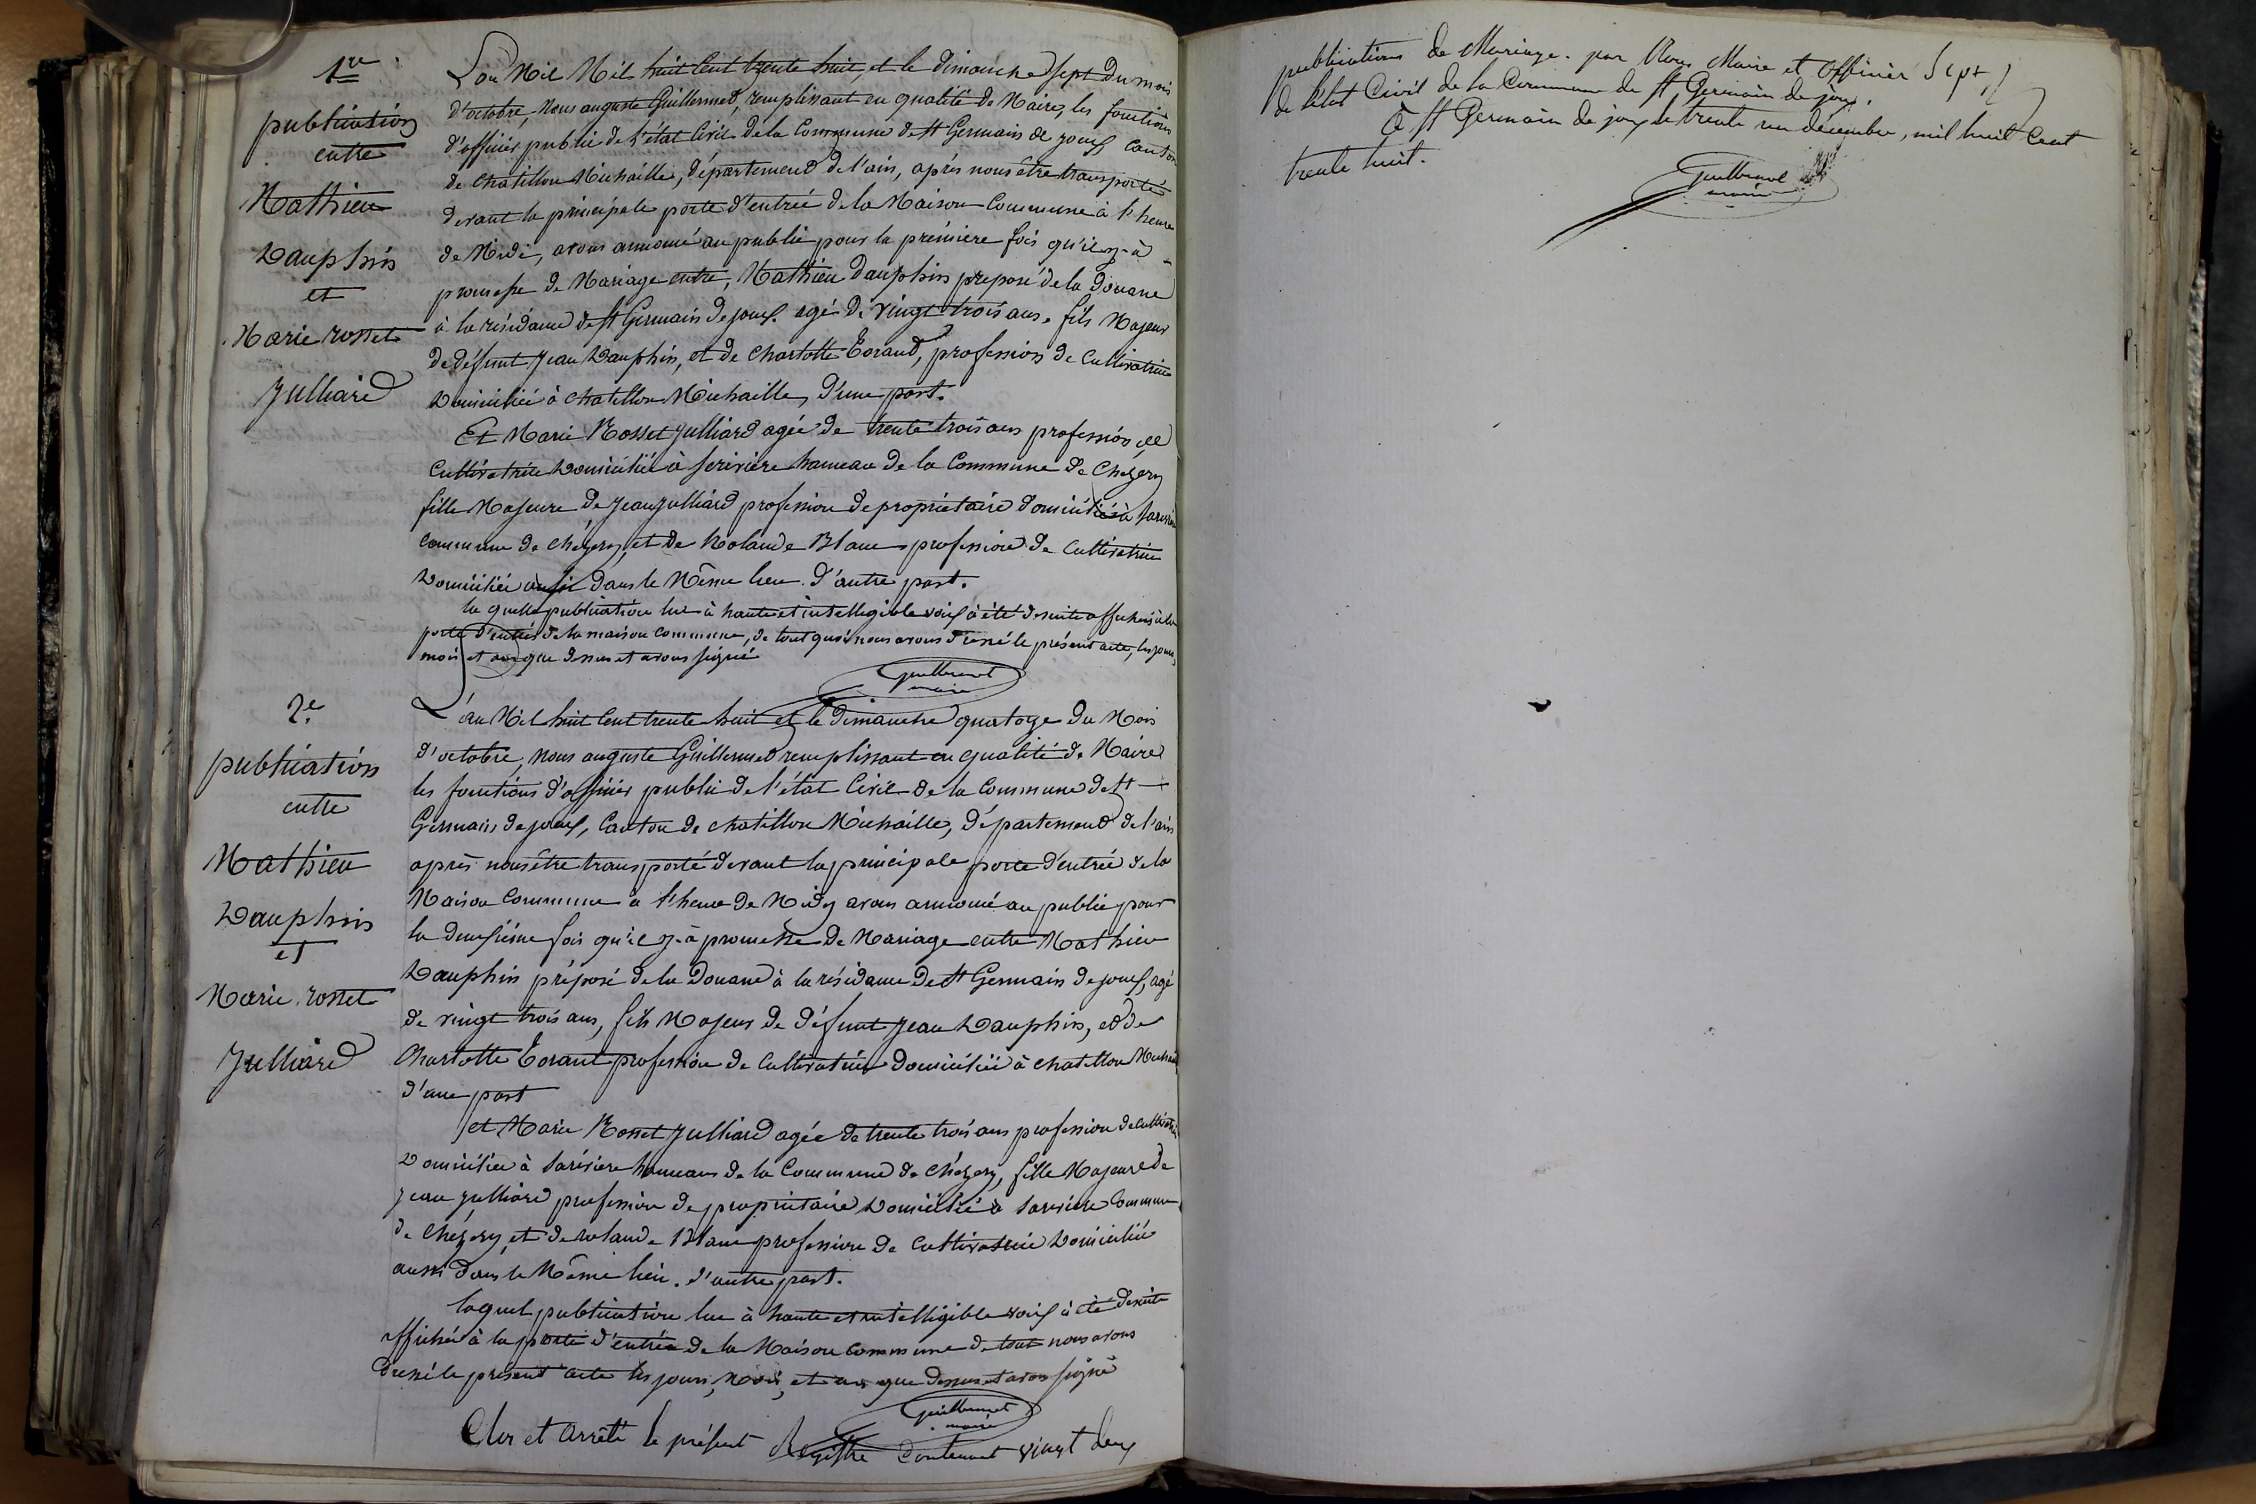 1re
publication
entre
Mathieu
Dauphin
et
Marie rosset
Julliard
L'an Mil Mil huit Cent trente huit, et le dimanche sept du mois
d'octobre, Nous auguste Guillermet, remplissant en qualité de Maire, les fonctions
d'officier public de l'état Civil de la Commune de St Germain de joux Canton
de Chatillon Michaille, département de l'ain, après nous être transporté
devant la principale porte d'entrée de la Maison Commune à l'heure
de Midi, avons annoncé au public pour la première fois qu'il y-à
promesse de Mariage entre, Mathieu Dauphin preposé de la Douane
à la résidance de St Germain de joux. agé de vingt trois ans. fils Majeur
de défunt Jean Dauphin, et de Charlotte Eorand, profession de Cultivatrice
Domiciliée à Chatillon Michaille, d'une part.
Et Marie Rosset Julliard agée de trente trois ans profession de
Cultivatrice Domiciliée à serivière hameau de la Commune de Chézery
fille Majeure de Jean Julliard profession de propriétaire domicilié à
Commune de Chézery, et de Rolande Blanc profession de Cultivatrice
Domiciliée aussi dans le Même lieu. d'autre part.
la quelle publication lue à haute et intelligible voix à été de suite affichée à la
porte d'entrée de la maison Commune, de tout quoi nous avons dressé le présent acte, les jours,
mois et an que dessus et avons signé
Guillermet
maire
2e
publication
entre
Mathieu
Dauphin
et
Marie rosset
Julliard
L'an Mil huit Cent trente huit et le dimanche quatorze du Mois
d'octobre, Nous auguste Guillermet remplissant en qualité de Maire
les fonctions d'officier public de l'état Civil de la Commune de St
Germain de joux, Canton de Chatillon Michaille, département de l'ain
après nous être transporté devant la principale porte d'entrée de la
Maison Commune à l'heure de Midy avons annoncé au public pour
la deuxième fois qu'il y-à promesse de Mariage entre Mathieu
Dauphin préposé de la Douane à la résidance de St Germain de joux, agé
de vingt trois ans, fils Majeur de défunt Jean Dauphin, et de
Charlotte Eorant profession de Cultivatrice domiciliée à Chatillon Michaille
d'une part
et Marie Rosset Julliard agée de trente trois ans profession de Cultivatrice
Domiciliée à sarivière hameau de la Commune de Chézery, fille Majeure de
Jean Julliard profession de propriétaire Domicilié à sarivière Commune
de Chézery, et de rolande Blanc profession de Cultivatrice Domiciliée
aussi dans le Même lieu. d'autre part.
laquel publication lue à haute et intelligible voix à été de suite
affichée à la porte d'entrée de la Maison Commune de tout nous avons
dressé le présent acte les jours, Mois, et an que dessus et avons signé
Guillermet
maire
Clos et arrêté le présent Registre Contenant vingt deux
publications de Mariage. par Nous Maire et Officier
de l'état Civil de la Commune de St Germain de joux.
à St Germain de joux le trente un décembre, mil huit Cent
trente huit.
Guillermet
maire